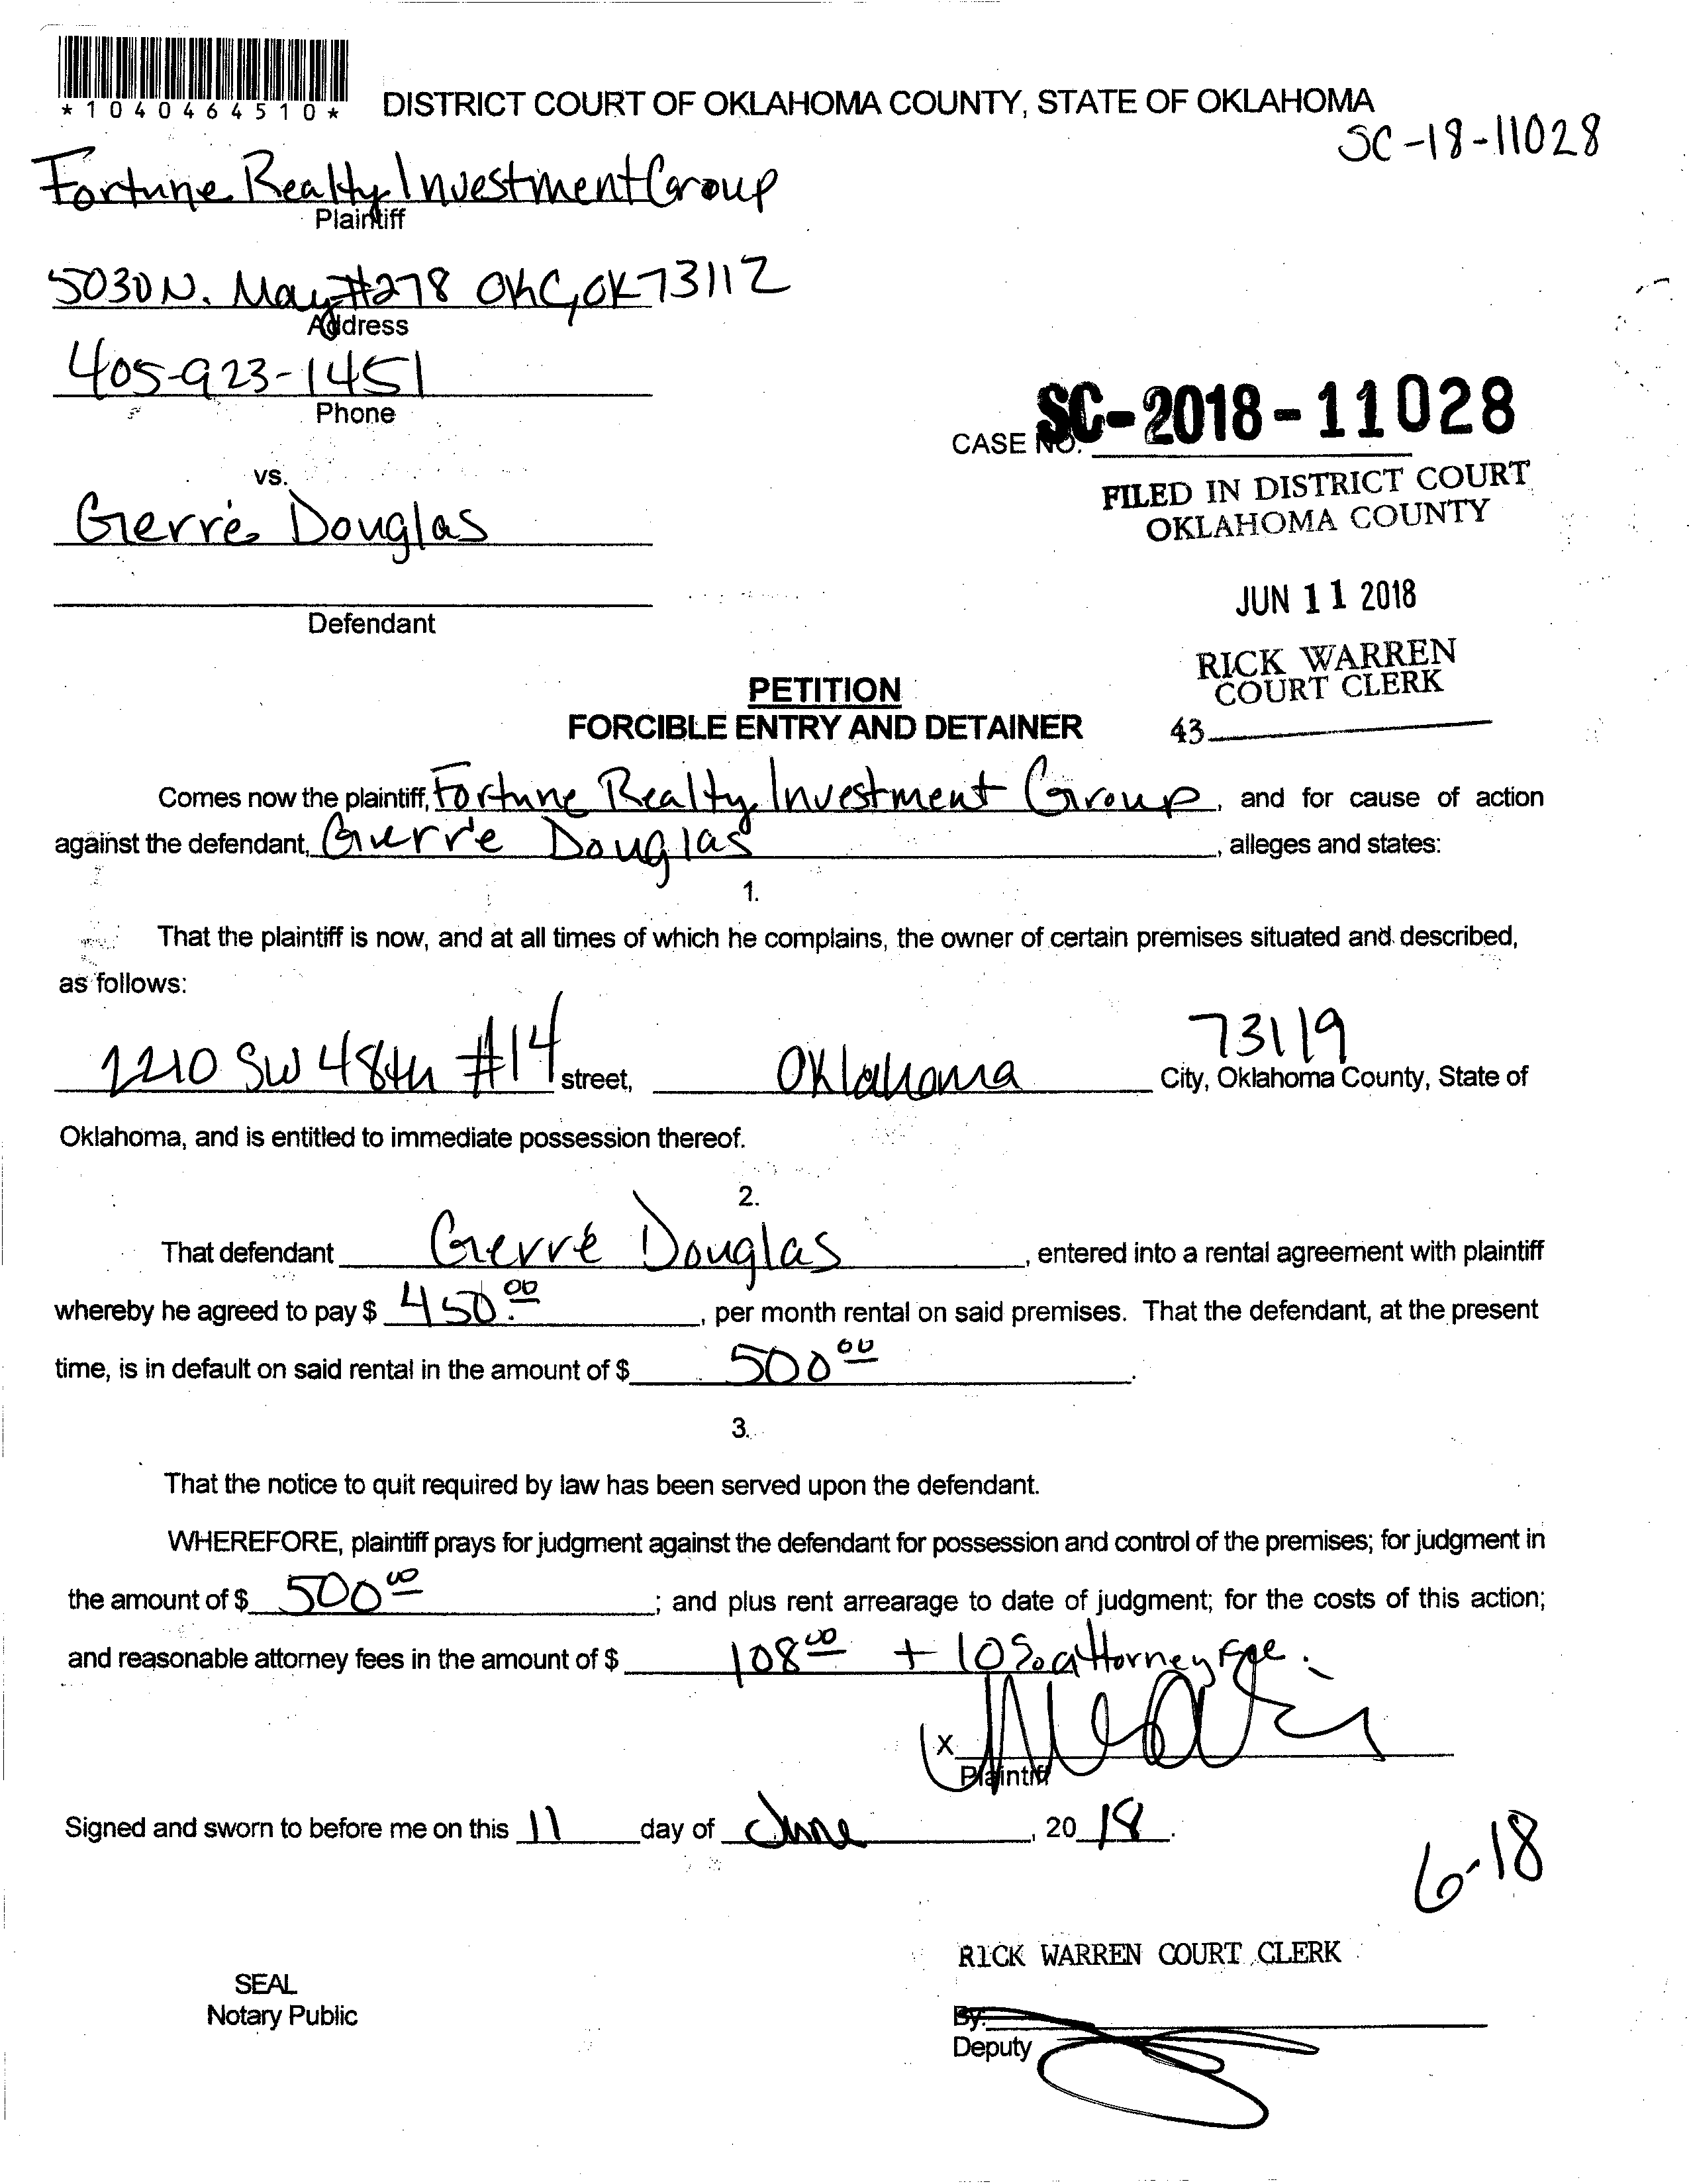 *1040464510*
DISTRICT COURT OF OKLAHOMA COUNTY, STATE OF OKLAHOMA
SC-18-11028
Fortune Realty Investment Group
Plaintiff
5030 N. May #278 OKC, OK 73112
Address
405-923-1451
Phone
CASE NO. SC-2018-11028
vs.
FILED IN DISTRICT COURT
OKLAHOMA COUNTY
Gerre Douglas
JUN 11 2018
Defendant
RICK WARREN
COURT CLERK
43
PETITION
FORCIBLE ENTRY AND DETAINER
Comes now the plaintiff, Fortune Realty Investment Group, and for cause of action
against the defendant, Gerr'e Douglas, alleges and states:
1.
That the plaintiff is now, and at all times of which he complains, the owner of certain premises situated and described,
as follows:
73119
SW 48th #14 street, Oklahoma City, Oklahoma County, State of
Oklahoma, and is entitled to immediate possession thereof.
2.
That defendant Gerré Douglas, entered into a rental agreement with plaintiff
whereby he agreed to pay $ 450.00, per month rental on said premises. That the defendant, at the present
time, is in default on said rental in the amount of $ 500 00.
3.
That the notice to quit required by law has been served upon the defendant.
WHEREFORE, plaintiff prays for judgment against the defendant for possession and control of the premises; for judgment in
the amount of $ 500 00; and plus rent arrearage to date of judgment; for the costs of this action;
and reasonable attorney fees in the amount of $ 108 00 + attorney Fee.
X
Plaintiff
Signed and sworn to before me on this 11 day of June, 20 18.
6-18
RICK WARREN COURT CLERK
SEAL
Notary Public
By:
Deputy